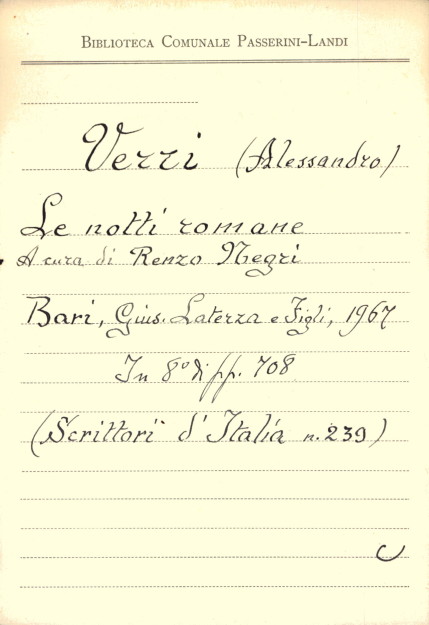 BIBLIOTECA COMUNALE PASSERINI-LANDI
Verri (Alessandro)
Le notti romane
A cura di Renzo Negri
Bari, Gius. Laterza e Figli, 1967
In 8° di pp. 708
(Scrittori d' Italia n. 239)